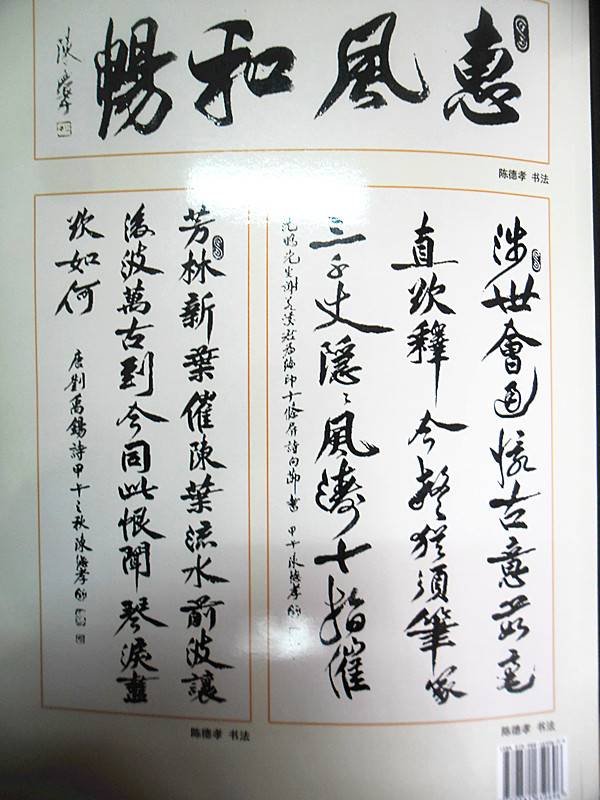 惠風和暢
陳德孝
陈德孝 书法
涉世會通恢古意茲毫
直欲釋今疑猶須筆冢
三千丈隱〻風濤十指催
甲午陳德孝
陈德孝 书法
芳林新葉催陳葉流水前波讓
後波萬古到今同此恨聞琴淚盡
欲如何
唐劉禹錫詩甲午之秋陳德孝
陈德孝 书法